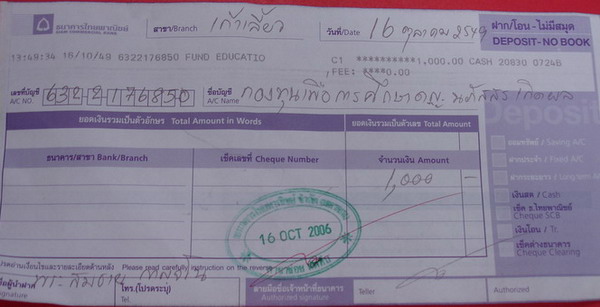 ธนาคารไทยพาณิชย์ สาขา/Branch เก้าเลี้ยว วันที่/Date 16 ตุลาคม 2549 ฝาก/โอน-ไม่มีสมุด
SIAM COMMERCIAL BANK DEPOSIT-NO BOOK
13:49:34 16/10/49 6322176850 FUND EDUCATIO C1 **********1,000.00 CASH 20830 0724B
,FEE: ****0.00
เลขที่บัญชี A/C NO. 6322176850 ชื่อบัญชี A/C Name กองทุนเพื่อการศึกษา
ยอดเงินรวมเป็นตัวอักษร Total Amount in Words ยอดเงินรวมเป็นตัวเลข Total Amount Deposit
ออมทรัพย์ / Saving A/C
ธนาคาร/สาขา Bank/Branch เช็คเลขที่ Cheque Number จำนวนเงิน Amount
ฝากประจำ / Fixed A/C
1,000 -
เงินสด / Cash
เช็ค ธ.ไทยพาณิชย์
Cheque SCB
16 OCT 2006
เงินโอน / Tr.
เช็คต่างธนาคาร
Cheque Clearing
Please read carefully instruction on the reverse
ชื่อผู้นำฝาก โทร.(โปรดระบุ) ลายมือชื่อเจ้าหน้าที่ธนาคาร Teller Authorized
signature Tel. Authorized signature